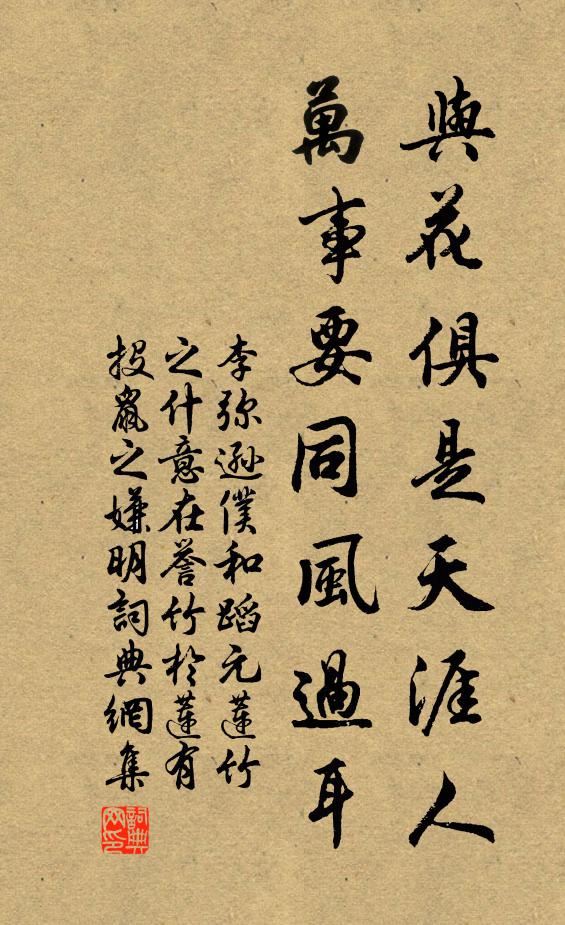 與花俱是天涯人
萬事要同風過耳
李弥遜僕和蹈元蓮竹
之什意在誉竹於蓮有
投鼠之嫌明詞典網集
詞典网印